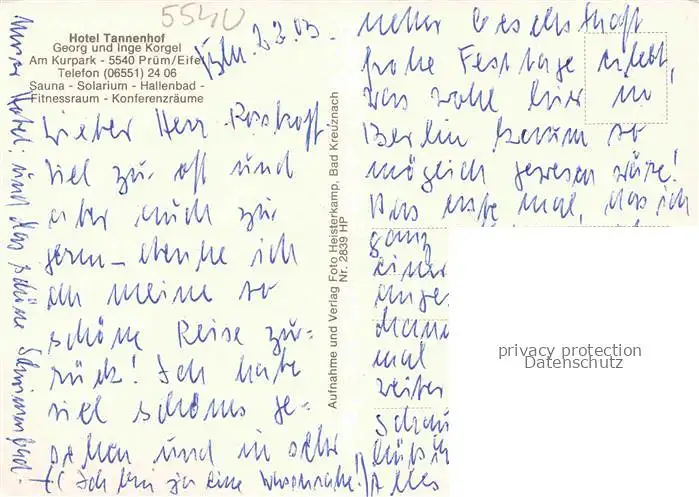 5540
Hotel Tannenhof
Georg und Inge Korgel
Am Kurpark - 5540 Prüm/Eifel
Telefon (06551) 24 06
Sauna - Solarium - Hallenbad -
Fitnessraum - Konferenzräume
Bln. 2.2.03.
Lieber Herr Rosskopf
viel zu oft und
aber auch zu
gern - denke ich
an meine so
schöne Reise zu-
rück! Ich habe
viel schönes ge-
sehen und in sehr
(Ich bin ja eine Wasserratte!)
Unser Hotel und das schöne Schwimmbad.
Aufnahme und Verlag Foto Heisterkamp, Bad Kreuznach
Nr. 2839 HP
netter Gesellschaft
frohe Festtage erlebt,
was wohl hier in
Berlin kaum so
möglich gewesen wäre!
Das erste mal, das ich
ganz
einer
ange
dann
mal
weiter
Schau
Alles
privacy protection
Datenschutz